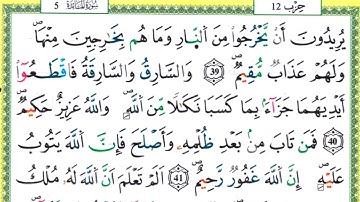 حِزْب 12 سُورَةُ المَائِدَة 5
يُرِيدُونَ أَنْ يَّخْرُجُوا مِنَ النّارِ وَمَا هُم بِخَارِجِينَ مِنْهَا
وَلَهُمْ عَذَابٌ مُّقِيمٌ 39 وَالسَّارِقُ وَالسَّارِقَةُ فَاقْطَعُوا
أَيْدِيَهُمَا جَزَاءً بِمَا كَسَبَا نَكَالًا مِّنَ اللَّهِ وَاللَّهُ عَزِيزٌ حَكِيمٌ
40 فَمَن تَابَ مِنۢ بَعْدِ ظُلْمِهِ وَأَصْلَحَ فَإِنَّ اللَّهَ يَتُوبُ
عَلَيْهِ إِنَّ اللَّهَ غَفُورٌ رَّحِيمٌ 41 أَلَمْ تَعْلَمْ أَنَّ اللَّهَ لَهُ مُلْكُ